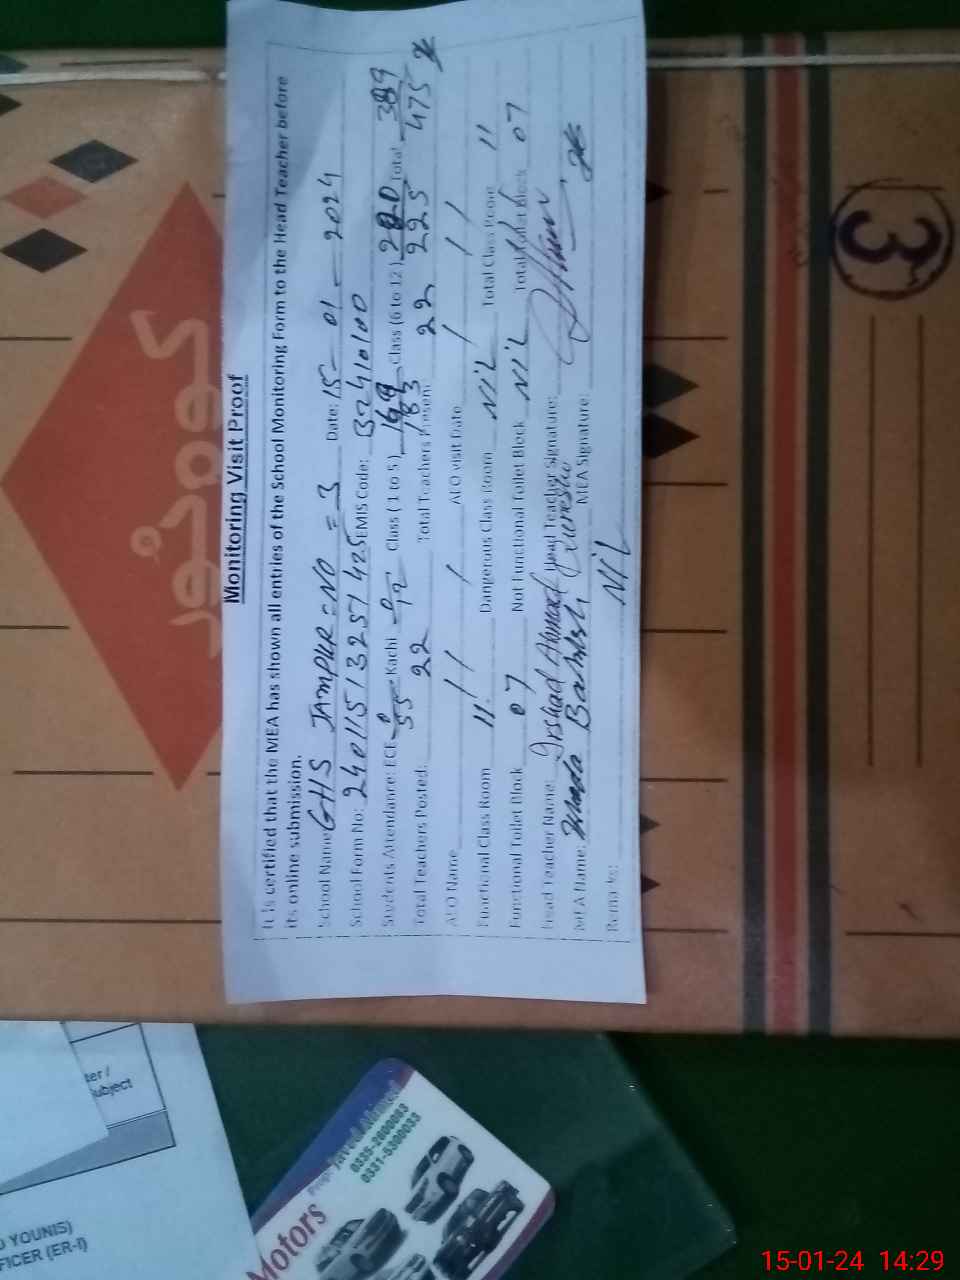 Monitoring Visit Proof
It is certified that the MEA has shown all entries of the School Monitoring Form to the Head Teacher before
its online submission.
School Name GHS JAMPUR = NO = 3 Date: 15 - 01 - 2024
School Form No: 2401151325142 EMIS Code: 32410100
Students Attendance: ECE Kachi Class (1 to 5) Class (6 to 12) Total 389
55 183 225 475
Total Teachers Posted: 22 Total Teachers Present: 22
AEO Name / / / AEO visit Date / / /
Functional Class Room 11 Dangerous Class Room NiL Total Class Room 11
Functional Toilet Block 07 Not Functional Toilet Block NiL Total Toilet Block 07
Head Teacher Name: Irshad Ahmad Head Teacher Signature:
MEA Name: Bakhsh Qureshi MEA Signature:
Remarks: NiL
3
ter /
ubject
D YOUNIS)
FICER (ER-I)
Motors
Prop: Javed Ahmed
0335-2600083
0331-5300033
15-01-24 14:29